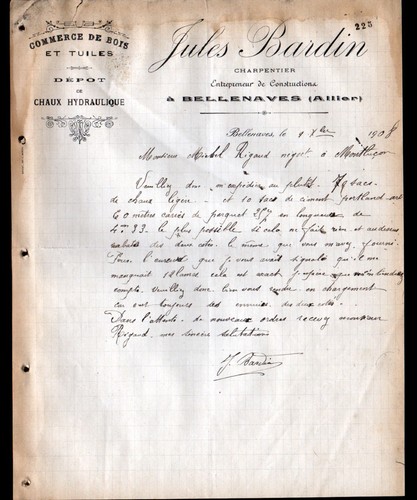 225
COMMERCE DE BOIS
ET TUILES
DÉPOT
DE
CHAUX HYDRAULIQUE
Jules Bardin
CHARPENTIER
Entrepreneur de Constructions
à BELLENAVES (Allier)
Bellenaves, le 9 Xbre 1908
Monsieur Michel Rigaud négt à Montluçon
Veuillez donc en expédier au plutôt 70 sacs
de chaux légère et 10 sacs de ciment portland
60 mètres carrés de parquet en longueurs de
4m 33 le plus possible si cela ne fait rien et au dessus
rabotés des deux cotés le même que vous m'avez fourni
Pour l'erreur que je vous avait signalé qu'il me
manquait 12 lames cela est exact j'espère que m'en tiendrez
compte veuillez donc bien vous rendre en chargement
car on toujours des ennuies des deux cotés
Dans l'attente de nouveaux ordres recevez monsieur
Rigaud mes sincère salutations
J. Bardin